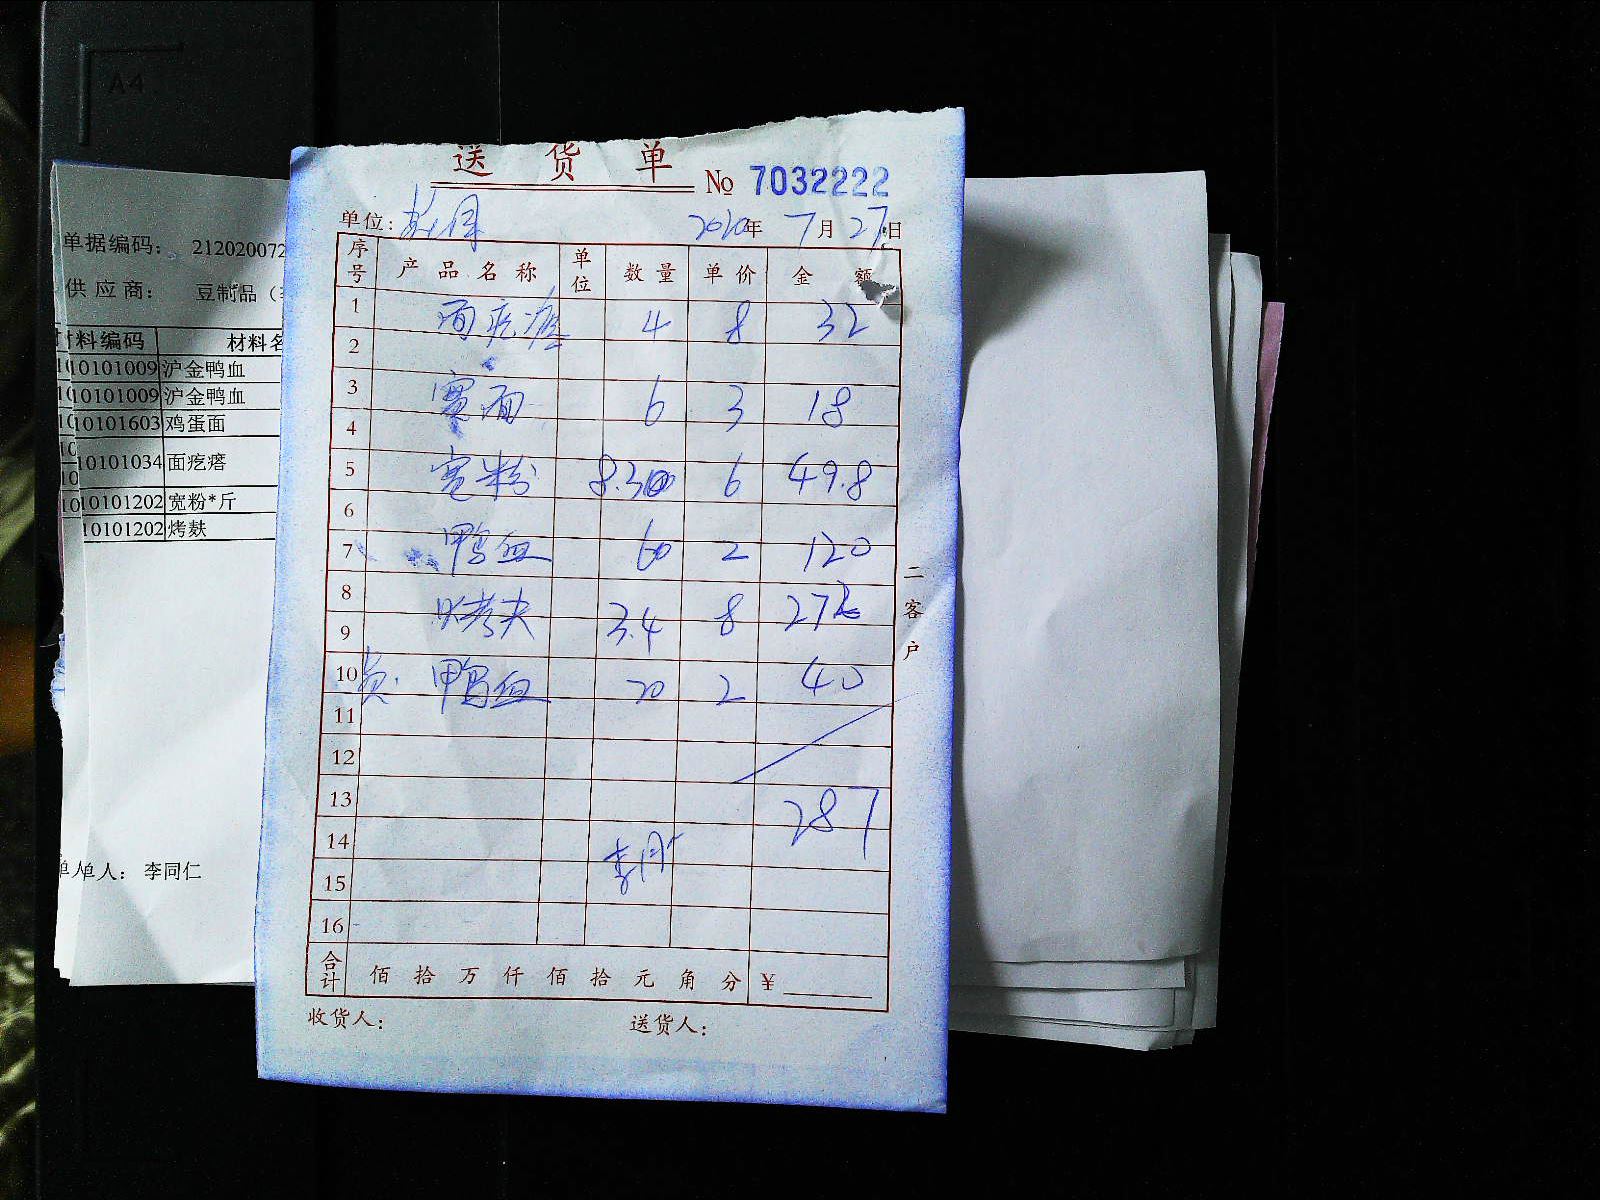 A4
送 货 单
No 7032222
单位: 彭月 2020年 7月27日
序号 产品名称 单位 数量 单价 金额
1 面疙瘩 4 8 32
2
3 宽面 6 3 18
4
5 宽粉 8.300 6 49.8
6
7 鸭血 60 2 120
8
9 烤夫 3.4 8 272
10 鸭血 20 2 40
11
12
13 287
14
15
16
合计 佰 拾 万 仟 佰 拾 元 角 分 ¥
收货人: 送货人:
二客户
单据编码: 212020072
供应商: 豆制品(
材料编码 材料名
10101009 沪金鸭血
10101009 沪金鸭血
10101603 鸡蛋面
10101034 面疙瘩
10101202 宽粉*斤
10101202 烤麸
单人: 李同仁